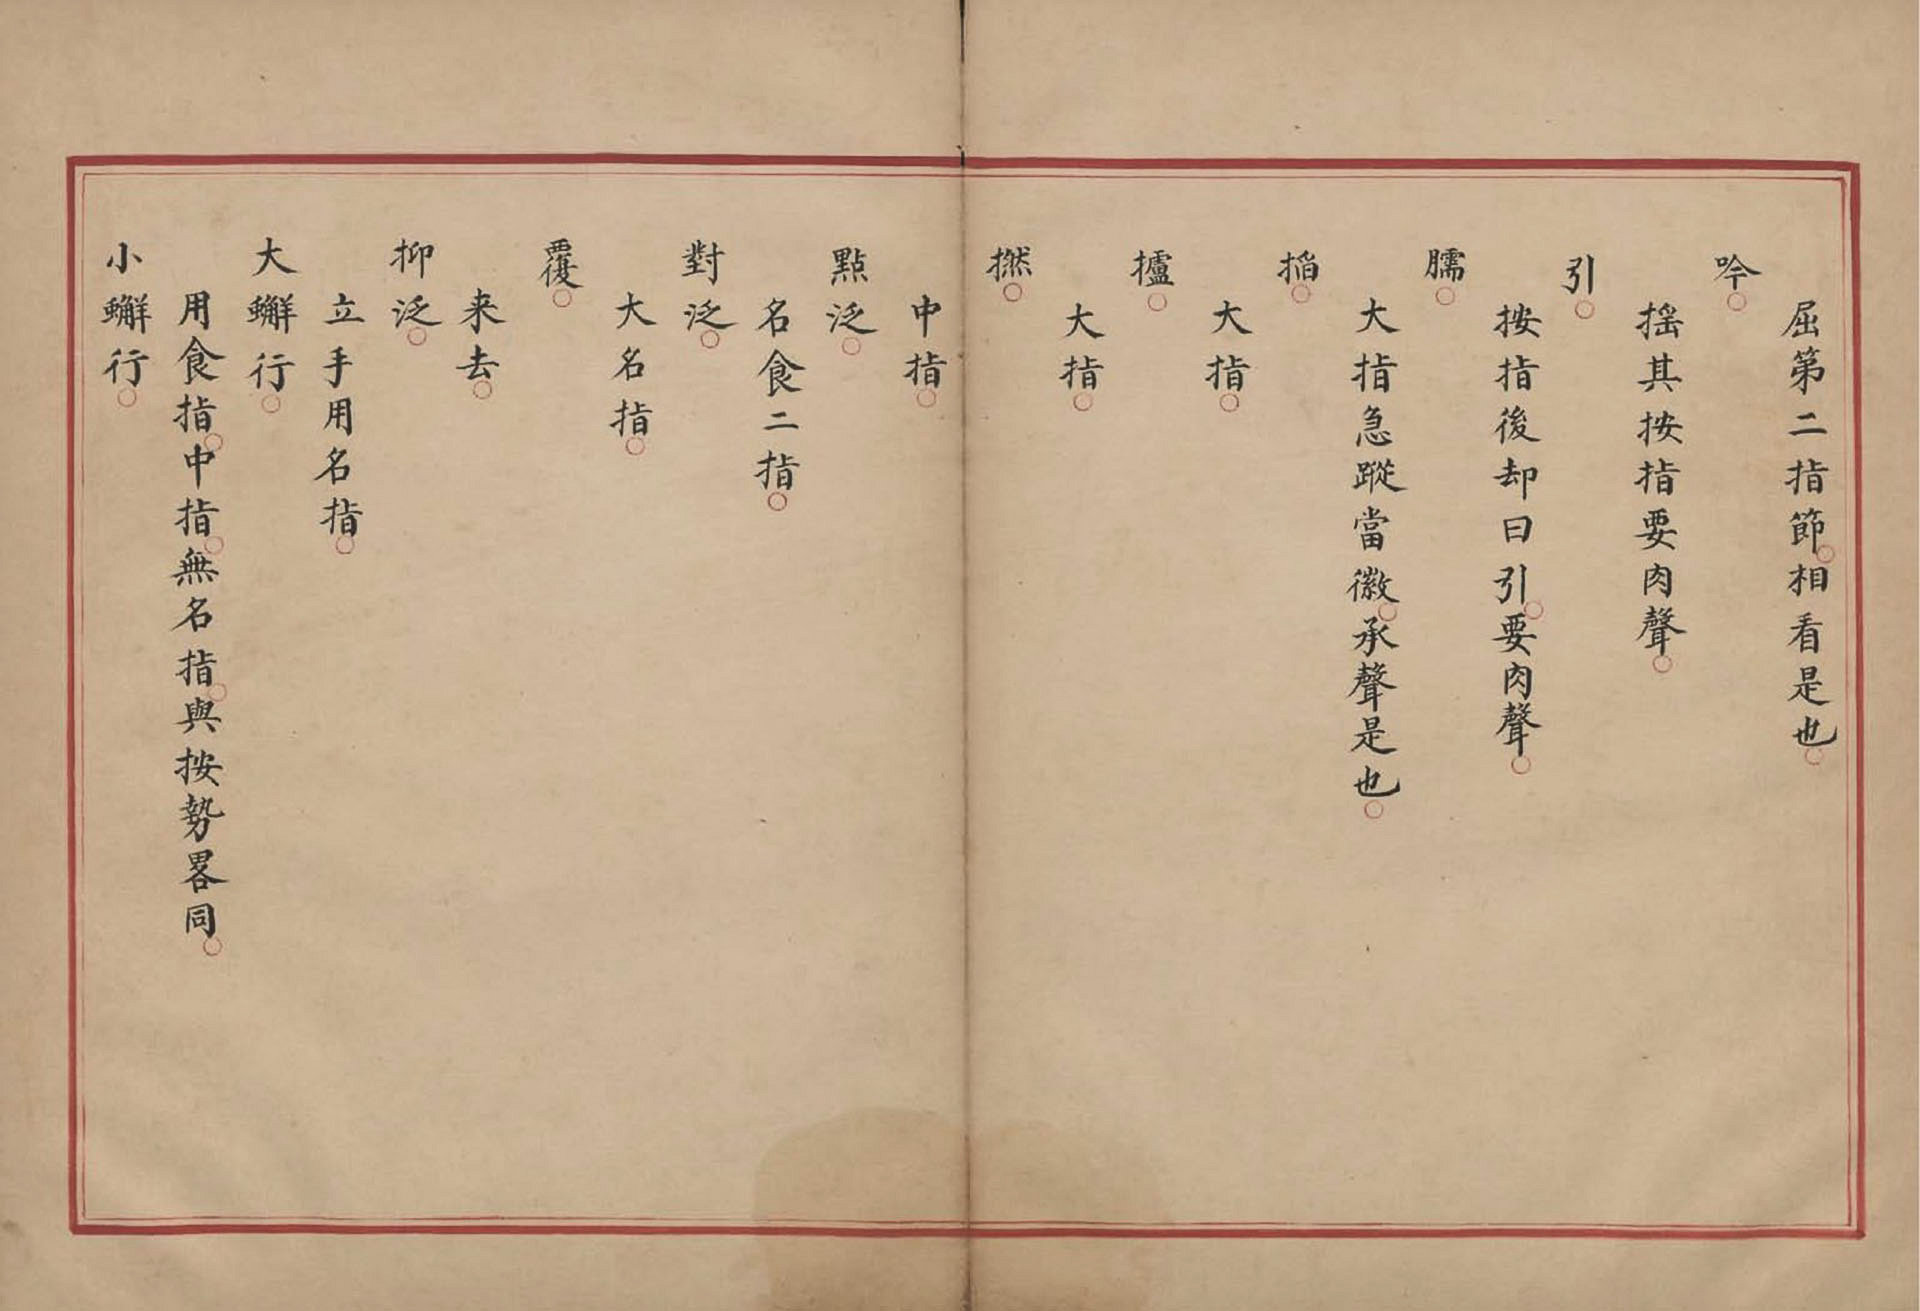 屈第二指節相看是也
吟
揺其按指要肉聲
引
按指後却曰引要肉聲
臑
大指急蹤當徽承聲是也
掐
大指
攎
大指
撚
中指
點泛
名食二指
對泛
大名指
覆
来去
抑泛
立手用名指
大蠏行
用食指中指無名指與按勢畧同
小蠏行